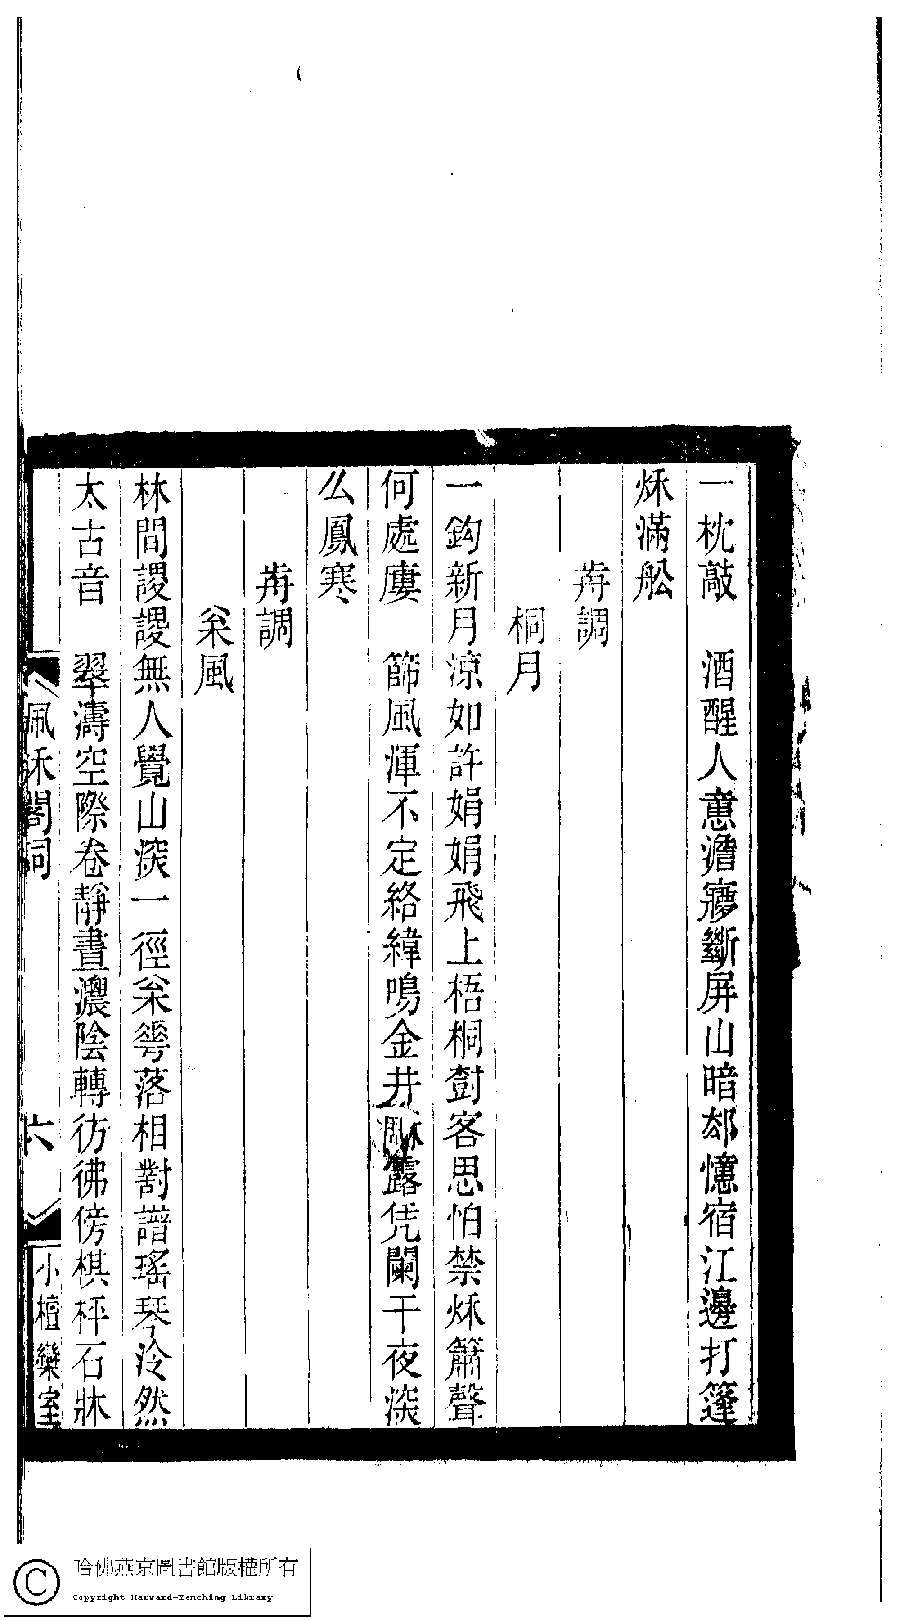 一枕敲　酒醒人意澹㝱斷屏山暗郤憶宿江邊打篷
秌滿舩
歬調
桐月
一鈎新月涼如許娟娟飛上梧桐尌客思怕禁秌簫聲
何處廔　篩風渾不定絡緯鳴金井露凭闌干夜深
么鳳寒
歬調
枀風
林間謖謖無人覺山深一徑枀荂落相對譜瑤琴泠然
太古音　翠濤空際卷靜晝濃陰轉彷彿傍棋枰石牀
佩秌閣詞
六
小檀欒室
哈佛燕京圖書館版權所有
Copyright Harvard-Yenching Library